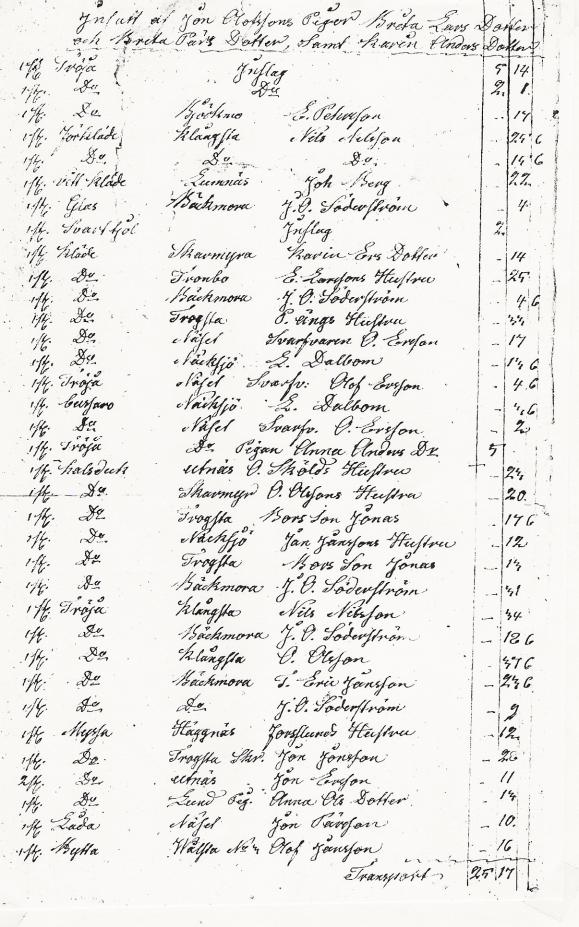 Insatt af Jon Olofssons Pigor Brita Lars Dotter
och Brita Pärs Dotter, Samt Karin Anders Dotter
1 st. Tröja Inslag 5 14
1 st. Do Do 2 1
1 st. Do E. Peterson - 17
1 st. Förkläde Klångsta Nils Nilsson - 25 6
1 st. Do Do Do - 15 6
1 st. vitt kläde Lumnäs Joh Berg - 22
1 st. Glas Bäckmora J. O. Söderström - 4
1 st. Svart Inslag 2
1 st. Kläde Skarmyra Karin Ers Dotter - 14
1 st. Do Fronbo E. Larssons Hustru - 25
1 st. Do Bäckmora J. O. Söderström - 4 6
1 st. Do Trogsta P. Ängs Hustru -
1 st. Do Näset Svarfvaren O. Ersson - 17
1 st. Do Näcksjö L. Dalbom - 6
1 st. Tröja Näset Svarfv: Olof Ersson - 4 6
1 st. Näcksjö L. Dalbom - 6
1 st. Do Näset Svarfv. O. Ersson - 2
1 st. Tröja Do Pigan Anna Anders Dr 5
1 st. Halsduk Utnäs O. Skölds Hustru -
1 st. Do Skarmyr O. Olssons Hustru - 20
1 st. Do Trogsta Mors Son Jonas - 17 6
1 st. Do Näcksjö Jan Janssons Hustru - 12
1 st. Do Trogsta Mors Son Jonas -
1 st. Do Bäckmora J. O. Söderström -
1 st. Tröja Klångsta Nils Nilsson - 34
1 st. Do Bäckmora J. O. Söderström - 18 6
1 st. Do Klångsta O. Olsson - 6
1 st. Do Bäckmora Eric Jansson - 6
1 st. Do Do J. O. Söderström - 9
1 st. Myssa Häggnäs Forslunds Hustru - 12
1 st. Do Trogsta Skr. Jon Jonsson - 26
2 st. Do Utnäs Jon Ersson - 11
1 st. Do Lund Pig. Anna Ols Dotter -
1 st. Låda Näset Jon Pärsson - 10
1 st. Bytta Wallsta No Olof Jansson - 16
Transport 25 17